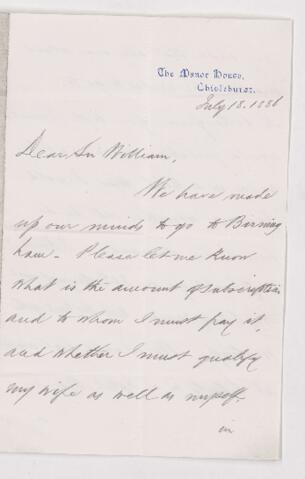 The Manor House,
Chislehurst.
July 18. 1886
Dear Sir William,
We have made
up our minds to go to Birming
ham. Please let me know
what is the amount of subscription
and to whom I must pay it,
and whether I must qualify
my wife as well as myself.
in